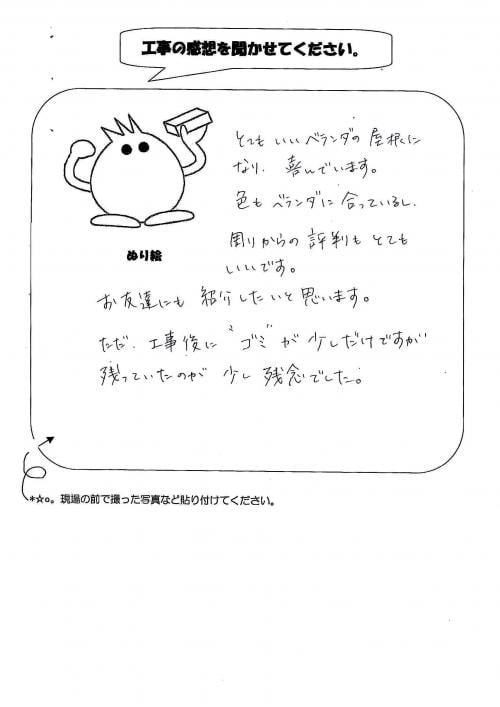 工事の感想を聞かせてください。
とてもいいベランダの屋根に
なり、喜んでいます。
色もベランダに合っているし、
周りからの評判もとても
いいです。
ぬり絵
お友達にも紹介したいと思います。
ただ、工事後に〝ゴミ〟が少しだけですが
残っていたのが少し残念でした。
*☆o。現場の前で撮った写真など貼り付けてください。